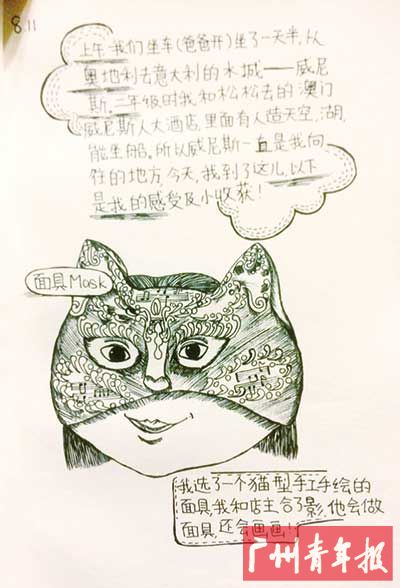 8.11
上午我们坐车(爸爸开)坐了一天半,从
奥地利去意大利的水城——威尼
斯,二年级时我和松松去的澳门
威尼斯人大酒店,里面有人造天空,湖,
能坐船。所以威尼斯一直是我向
往的地方,今天,我到了这儿,以下
是我的感受及小收获!
面具Mask
我选了一个猫型手工手绘的
面具,我和店主合了影,他会做
面具,还会画画!
广州青年报